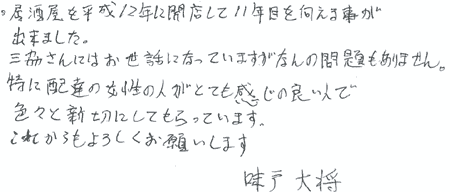 。居酒屋を平成12年に開店して11年目を向える事が
出来ました。
三協さんにはお世話になっていますがなんの問題もありません。
特に配達の女性の人がとても感じの良い人で
色々と新切にしてもらっています。
これからもよろしくお願いします
味戸 大将